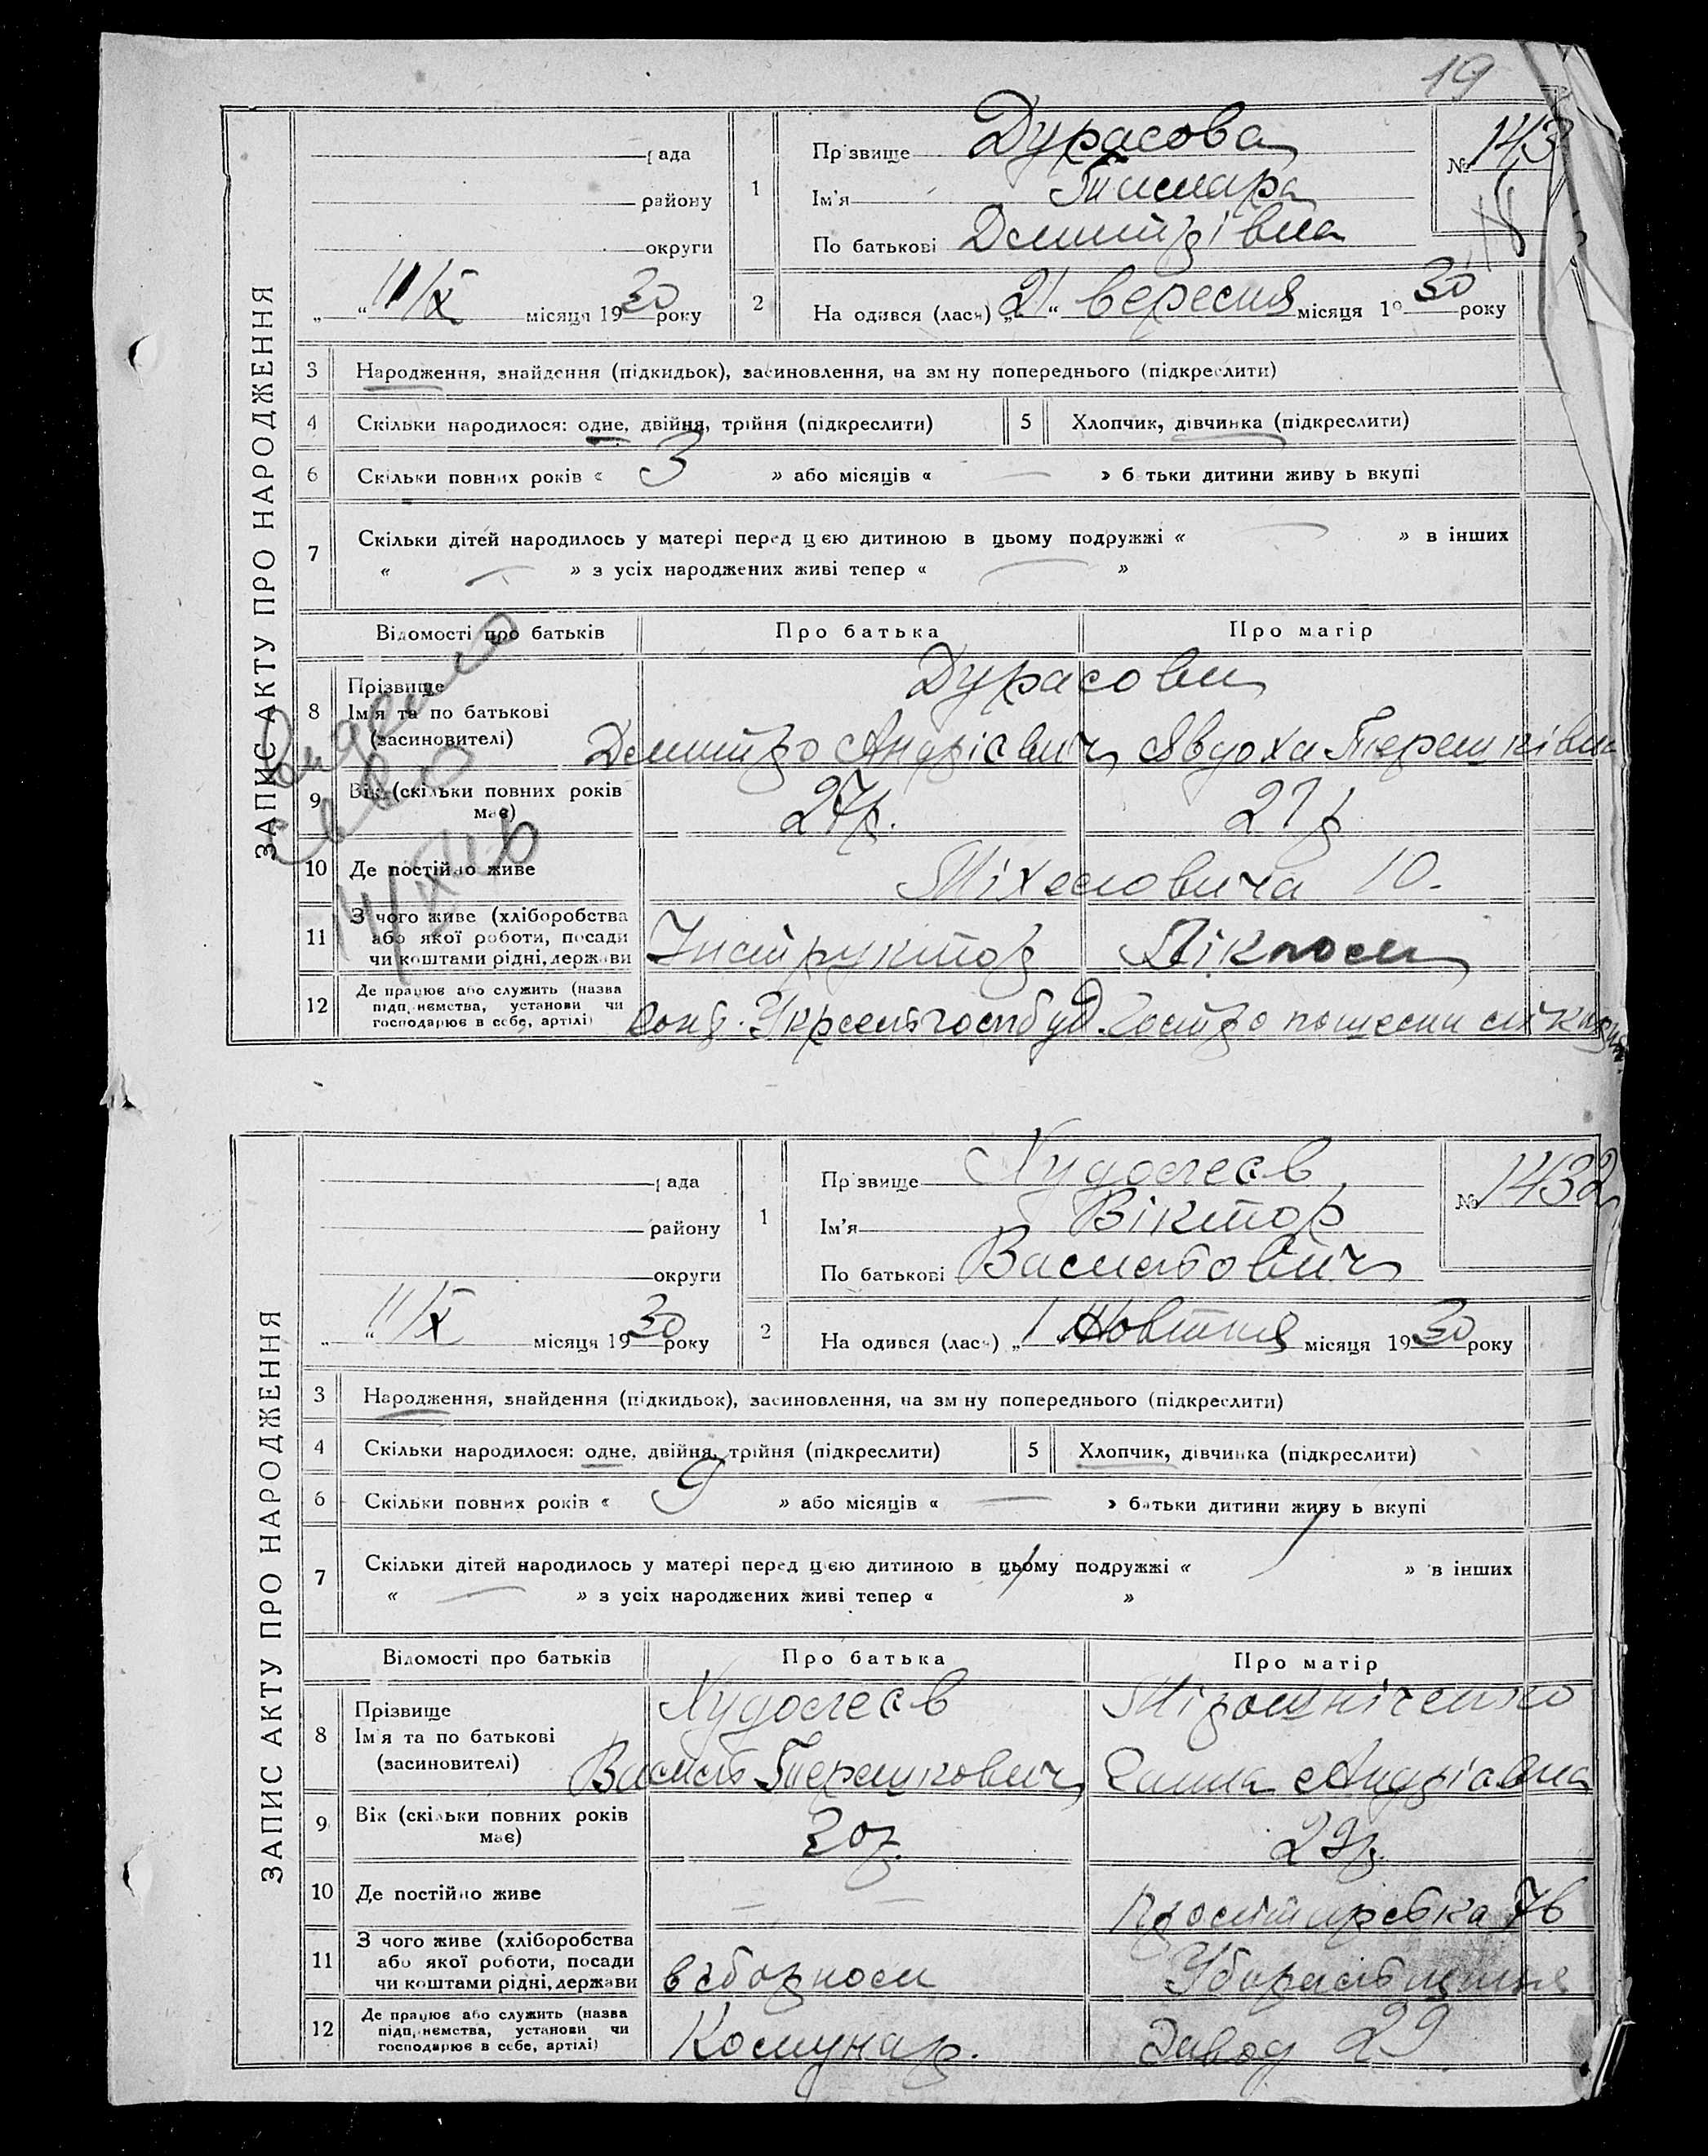 19
ЗАПИС АКТУ ПРО НАРОДЖЕННЯ
рада
району
округи
„ “ 11/X місяця 1930 року
1
Прізвище Дурасова
Ім'я Тамара
По батькові Дмитрівна
№ 143
18
2
Народився (лася) „21“ вересня місяця 1930 року
3 Народження, знайдення (підкидьок), засиновлення, на зміну попереднього (підкреслити)
4 Скільки народилося: одне, двійня, трійня (підкреслити)
5 Хлопчик, дівчинка (підкреслити)
6 Скільки повних років « 3 » або місяців « — » батьки дитини живуть вкупі
7 Скільки дітей народилось у матері перед цією дитиною в цьому подружжі « — » в інших
« — » з усіх народжених живі тепер « — »
Відомості про батьків Про батька Про матір
8 Прізвище
Ім'я та по батькові
(засиновителі)
Дурасови
Дмитро Андрієвич Явдоха Терешківна
9 Вік (скільки повних років має)
27р. 21р
10 Де постійно живе
Міхеловича 10.
11 З чого живе (хліборобства
або якої роботи, посади
чи коштами рідні, держави
Інструктор Лікпом
12 Де працює або служить (назва
підприємства, установи чи
господарює в себе, артілі)
Видано
ЗАПИС АКТУ ПРО НАРОДЖЕННЯ
рада
району
округи
„ “ 11/X місяця 1930 року
1
Прізвище Худолеєв
Ім'я Віктор
По батькові Васильович
№ 1432
2
Народився (лася) „1 Жовтня місяця 1930 року
3 Народження, знайдення (підкидьок), засиновлення, на зміну попереднього (підкреслити)
4 Скільки народилося: одне, двійня, трійня (підкреслити)
5 Хлопчик, дівчинка (підкреслити)
6 Скільки повних років « 9 » або місяців « — » батьки дитини живуть вкупі
7 Скільки дітей народилось у матері перед цією дитиною в цьому подружжі « 1 » в інших
« — » з усіх народжених живі тепер « 1 »
Відомості про батьків Про батька Про матір
8 Прізвище
Ім'я та по батькові
(засиновителі)
Худолеєв Мірошніченко
Василь Терешкович Ганна Андрієвна
9 Вік (скільки повних років має)
30р. 29р.
10 Де постійно живе
— — 76
11 З чого живе (хліборобства
або якої роботи, посади
чи коштами рідні, держави
Убиральщиця
12 Де працює або служить (назва
підприємства, установи чи
господарює в себе, артілі)
Комунар. Завод 29